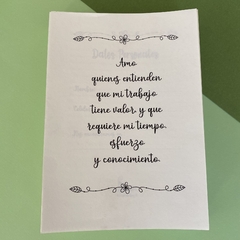 Amo
quienes entienden
que mi trabajo
tiene valor, y que
requiere mi tiempo,
esfuerzo
y conocimiento.